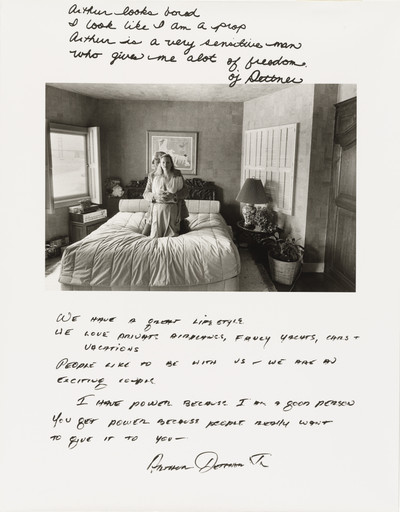 Arthur looks bored
I look like I am a prop
Arthur is a very sensitive man
who gives me alot of freedom.
Dottner
WE HAVE A GREAT LIFE STYLE
WE LOVE PRIVATE AIRPLANES, FANCY YACHTS, CARS +
VACATIONS
PEOPLE LIKE TO BE WITH US — WE ARE AN
EXCITING COUPLE
I HAVE POWER BECAUSE I AM A GOOD PERSON
YOU GET POWER BECAUSE PEOPLE REALLY WANT
TO GIVE IT TO YOU—
Arthur Jr.